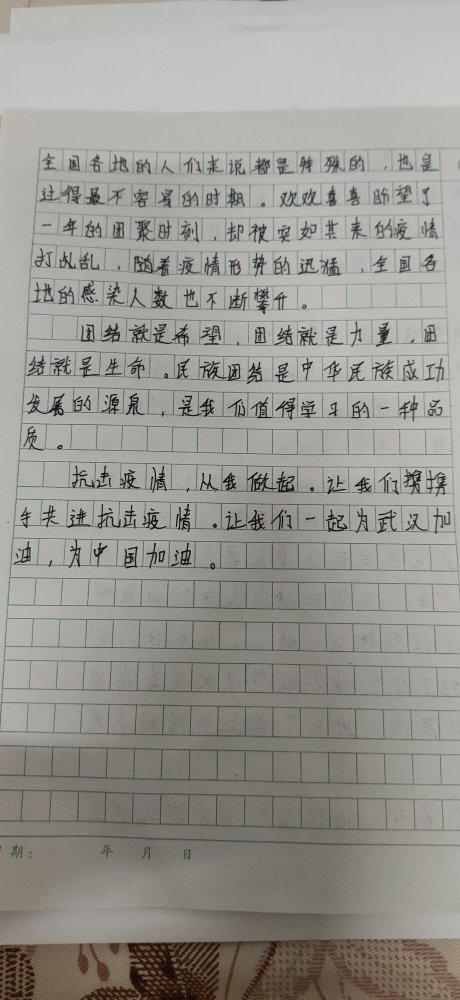 全国各地的人们来说都是特殊的，也是
过得最不容易的时期。欢欢喜喜盼望了
一年的团聚时刻，却被突如其来的疫情
打乱，随着疫情形势的迅猛，全国各
地的感染人数也不断攀升。
团结就是希望，团结就是力量，团
结就是生命。民族团结是中华民族成功
发展的源泉，是我们值得学习的一种品
质。
抗击疫情，从我做起。让我们携
手共进抗击疫情。让我们一起为武汉加
油，为中国加油。
期： 年 月 日